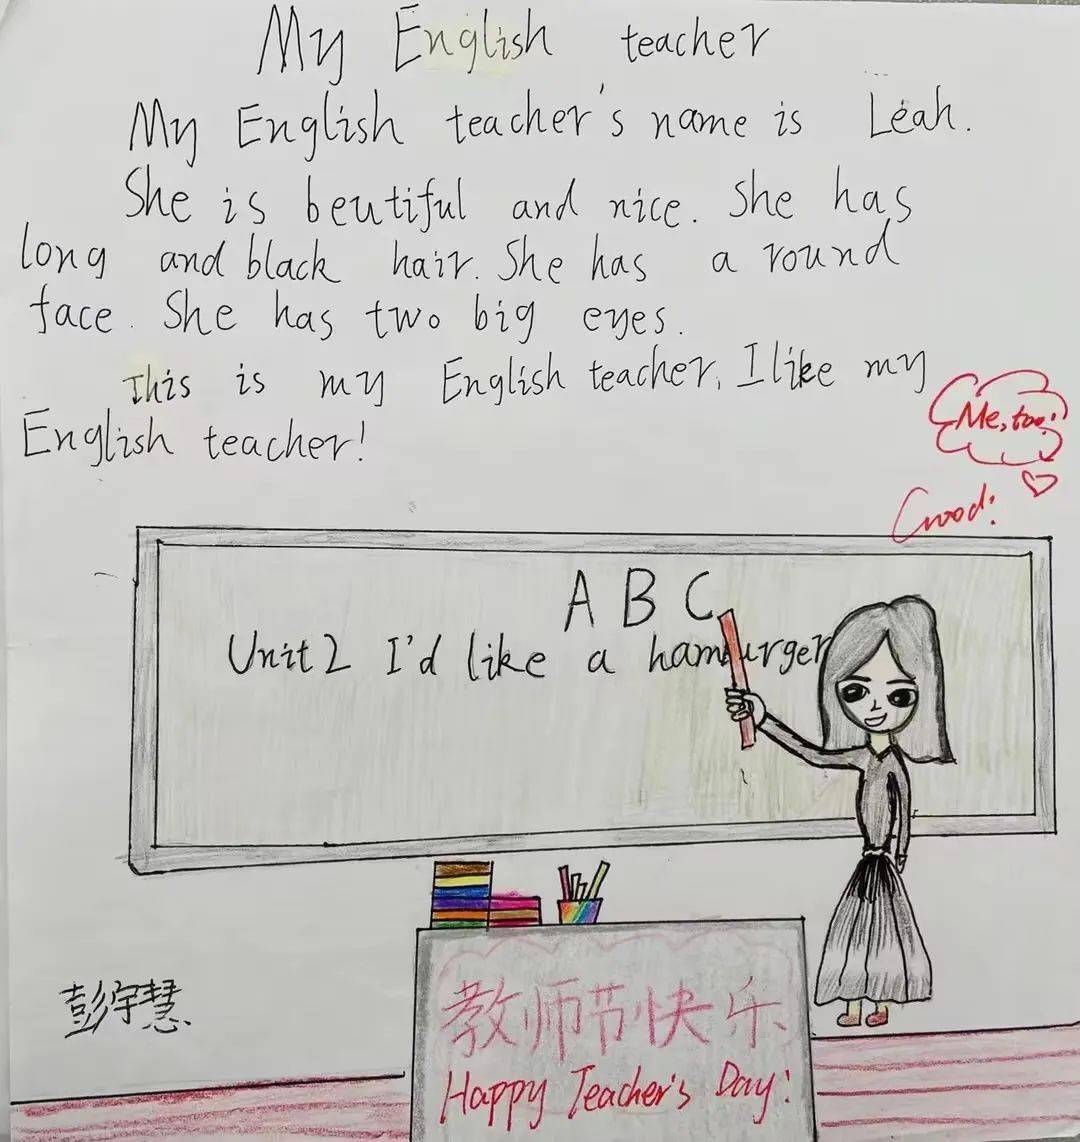 My English teacher
My English teacher's name is Leah.
She is beutiful and nice. She has
long and black hair. She has a round
face. She has two big eyes.
This is my English teacher, I like my
English teacher!
Me, too!
Good!
A B C
Unit 2 I'd like a hamburger
彭宇慧
教师节快乐
Happy Teacher's Day!